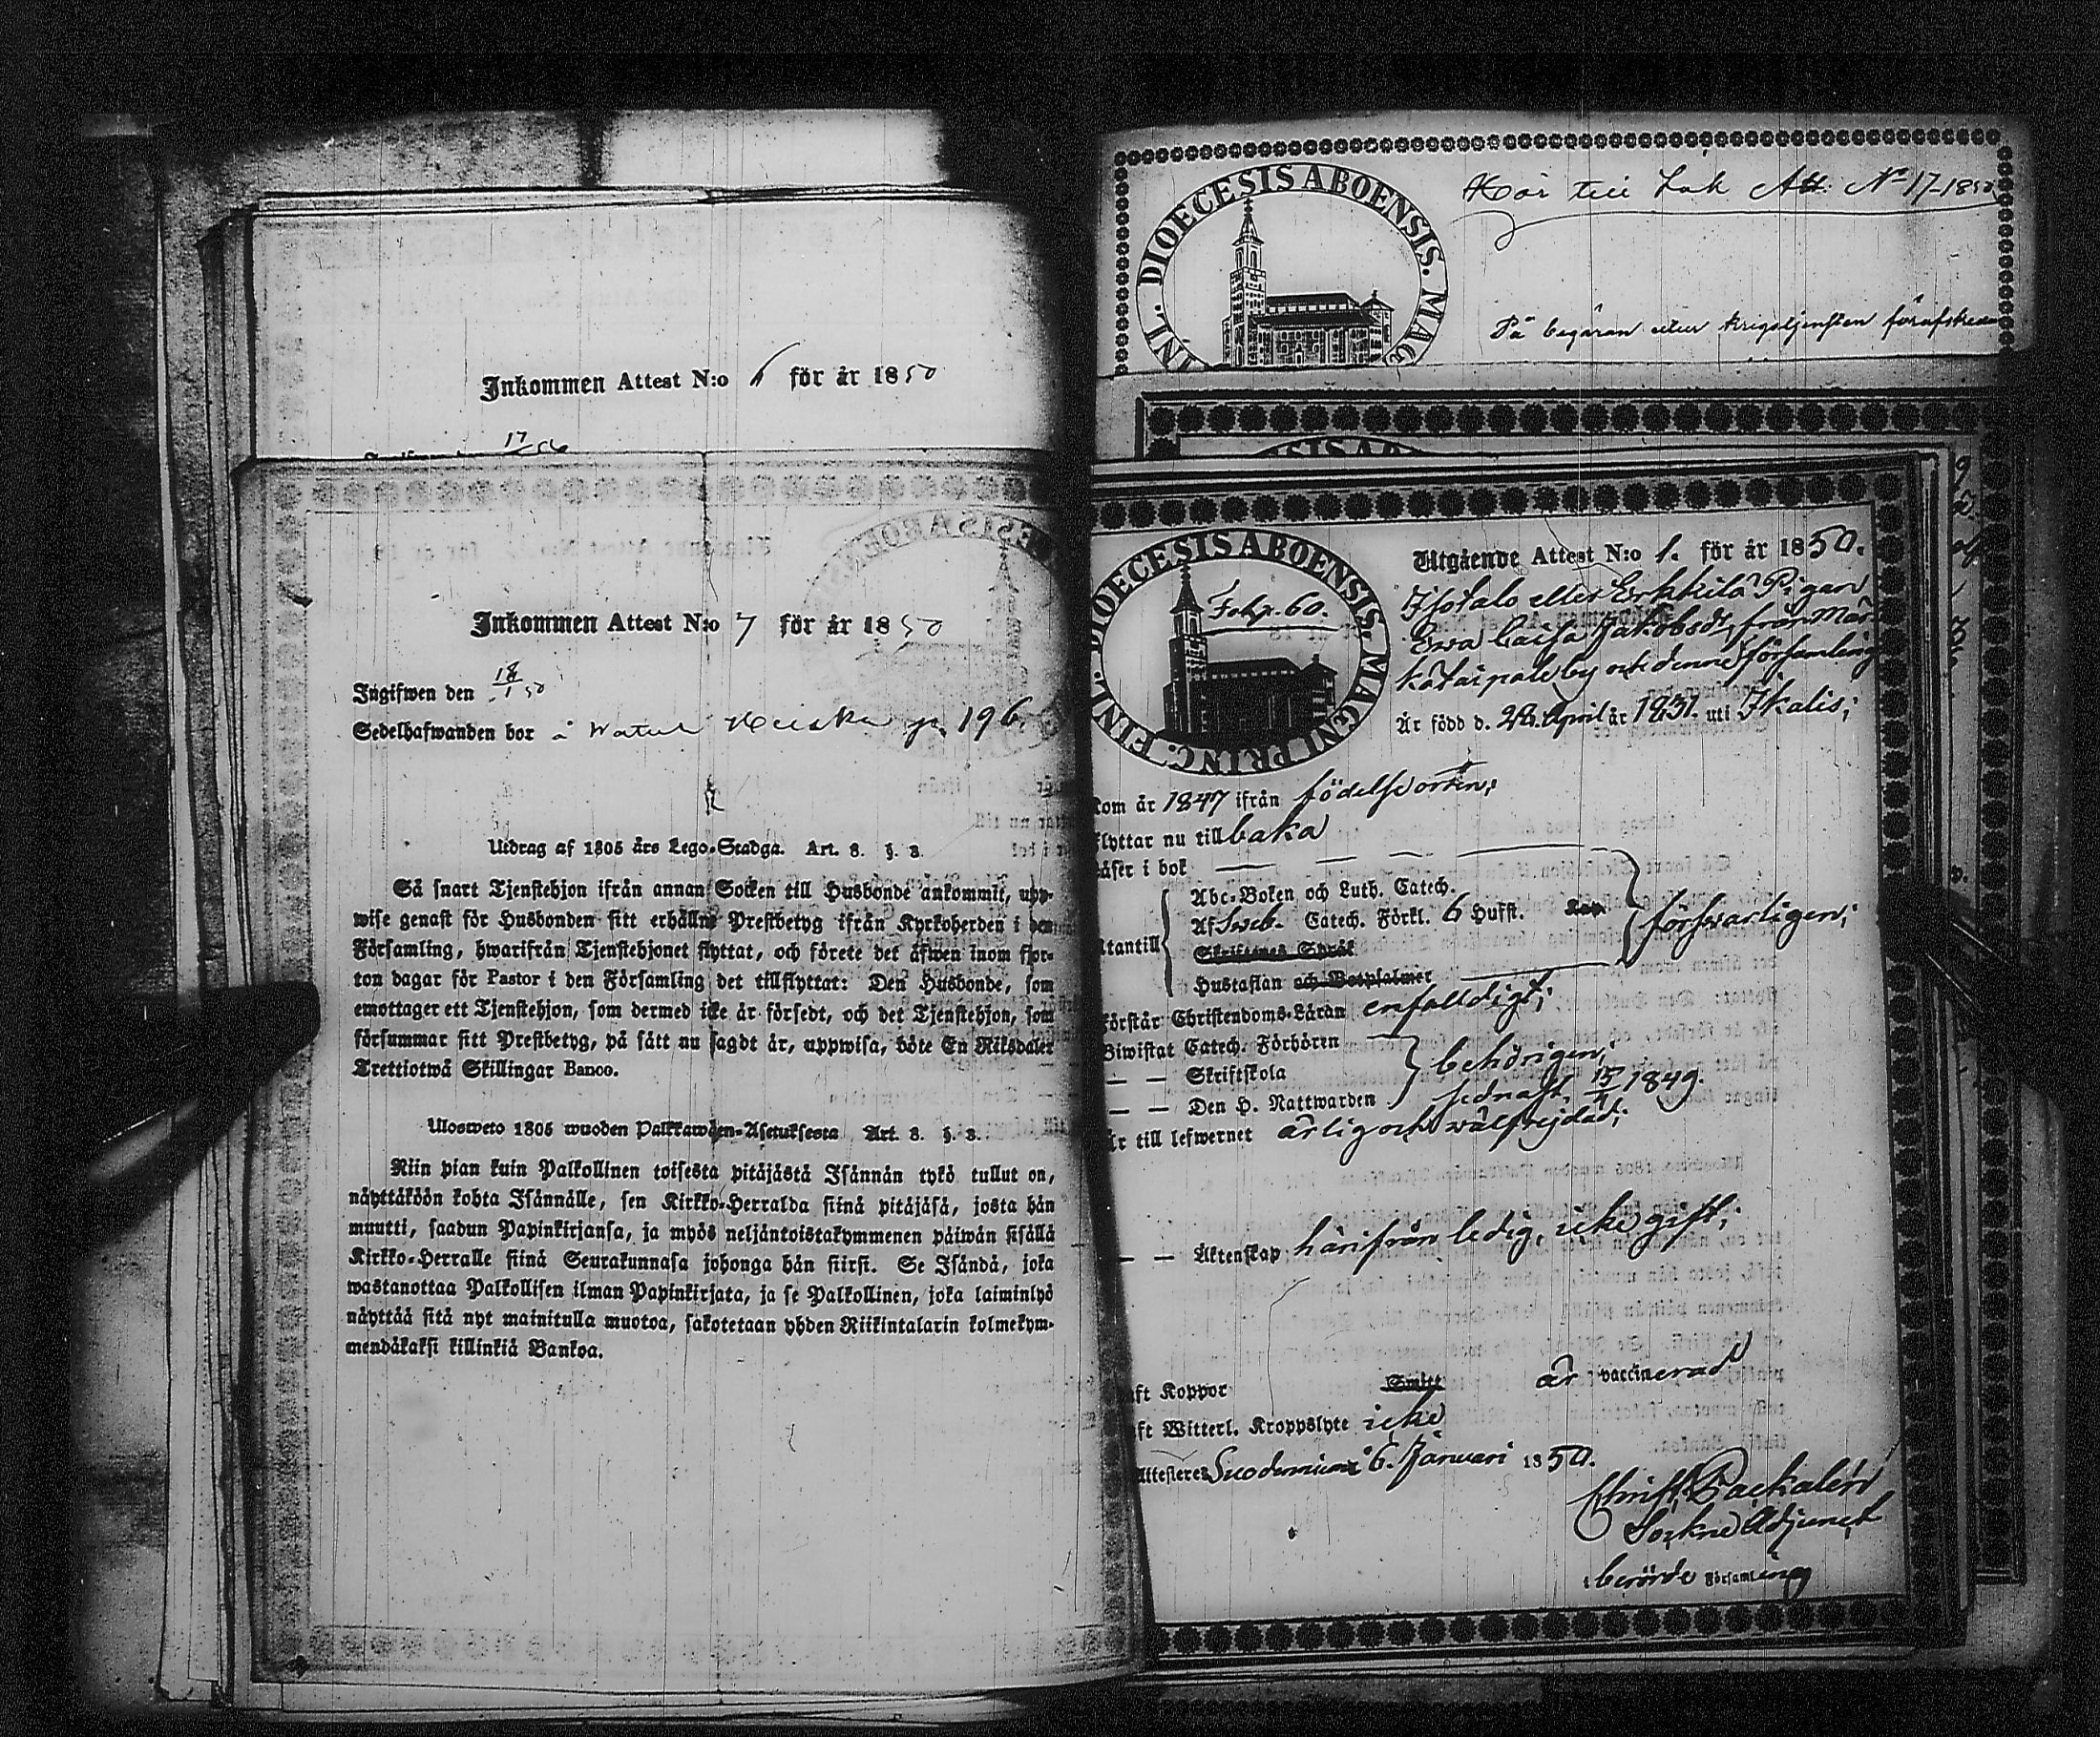 Inkommen Attest N:o 6 för år 1850
17/1 50
Inkommen Attest N:o 7 för år 1850
Ingifwen den 18/1 50
Sedelhafwanden bor å Heiska p. 196.
Utdrag af 1805 års Lego-Stadga. Art. 8. §. 3.
Så snart Tjenstehjon ifrån annan Socken till Husbonde ankommit, upp-
wise genast för Husbonden sitt erhållne Prestbetyg ifrån Kyrkoherden i den
Församling, hwarifrån Tjenstehjonet flyttat, och förete det äfwen inom fjor-
ton dagar för Pastor i den Församling det tillflyttat: Den Husbonde, som
emottager ett Tjenstehjon, som dermed icke är försedt, och det Tjenstehjon, som
försummar sitt Prestbetyg, på sätt nu sagdt är, uppwisa, böte En Riksdaler
Trettiotwå Skillingar Banco.
Ulosweto 1805 wuoden Palkkawäen-Asetuksesta Art. 8. §. 3.
Niin pian kuin Palkollinen toisesta pitäjästä Isännän tykö tullut on,
näyttäköön kohta Isännälle, sen Kirkko-Herralda siinä pitäjäsä, josta hän
muutti, saadun Papinkirjansa, ja myös neljäntoistakymmenen päiwän sisällä
Kirkko-Herralle siinä Seurakunnasa johonga hän siirsi. Se Isändä, joka
wastanottaa Palkollisen ilman Papinkirjata, ja se Palkollinen, joka laiminlyö
näyttää sitä nyt mainitulla muotoa, sakotetaan yhden Riikintalarin kolmekym-
mendäkaksi killinkiä Bankoa.
INI. DIOECESIS ABOENSIS. MAG
Hör till Att: No 17-1850
På begäran eller krigstjensten
FINL. DIOECESIS ABOENSIS. MAGNI PRINC.
Fol. p. 60.
Utgående Attest N:o 1. för år 1850.
Isotalo eller Erkkilä Pigan
Ewa Caisa Jakobsdr, från Mär-
by och denne församling
Är född d. 28. April år 1831. uti Ikalis;
kom år 1847 ifrån födelseorten;
flyttar nu till baka
läser i bok
utantill
Abc-Boken och Luth. Catech.
Af Sweb. Catech. Förkl. 6 Hufst. Kap.
Skriftenes Språk
Hustaflan och Botpsalmer
försvarligen;
Förstår Christendoms-Läran enfaldigt;
Biwistat Catech. Förhören
— — Skriftskola
— — Den H. Nattwarden
behörigen;
sednast 15/ 1849.
Är till lefwernet ärlig och wälfrejdad;
— — Äktenskap härifrån ledig, icke gift;
haft Koppor Smitt är vaccinerad
haft Witterl. Kroppslyte icke
Attesteres Suodenniemi 6. Januari 1850.
Christ. Packalén
Sockne Adjunct
i berörde Församling